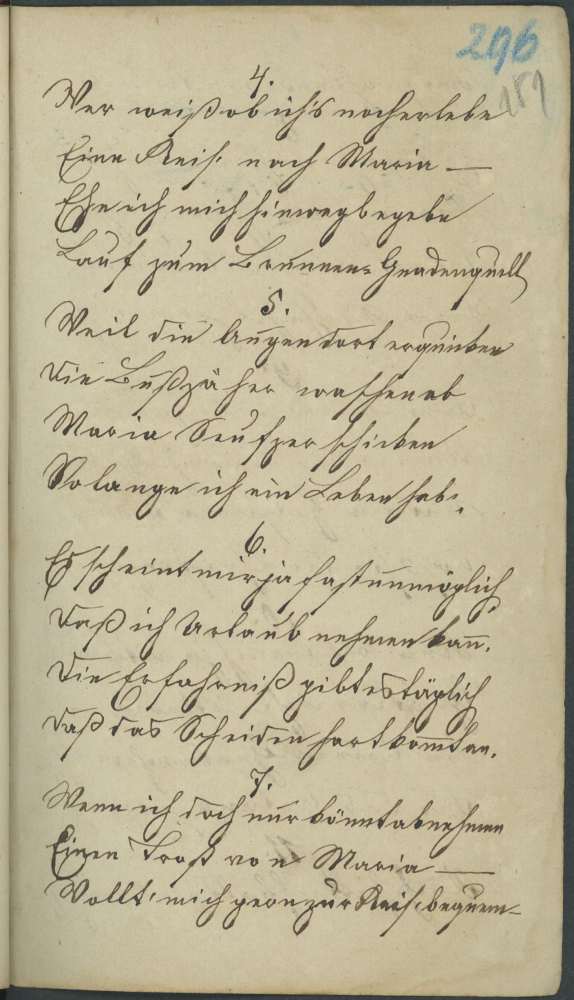 296
151
4.
Wer weiß ob ich's noch erlebe
Eine Reis' nach Maria —
Ehe ich mich hinwegbegebe
Lauf zum Brunnen-Gnadenquell
5.
Weil die Augen dort erquicken
Die Bußzäher waschen ab
Maria Seufzer schicken
Solange ich ein Leben hab.
6.
Es scheint mir ja fast unmöglich
Daß ich Urlaub nehmen kan̄.
Die Erfahrniß gibt es täglich
Daß das Scheiden hart kom̄t an.
7.
Wenn ich doch nur könnt abnehmen
Einen Trost von Maria —
Wollt' mich gern zur Reis' bequem-